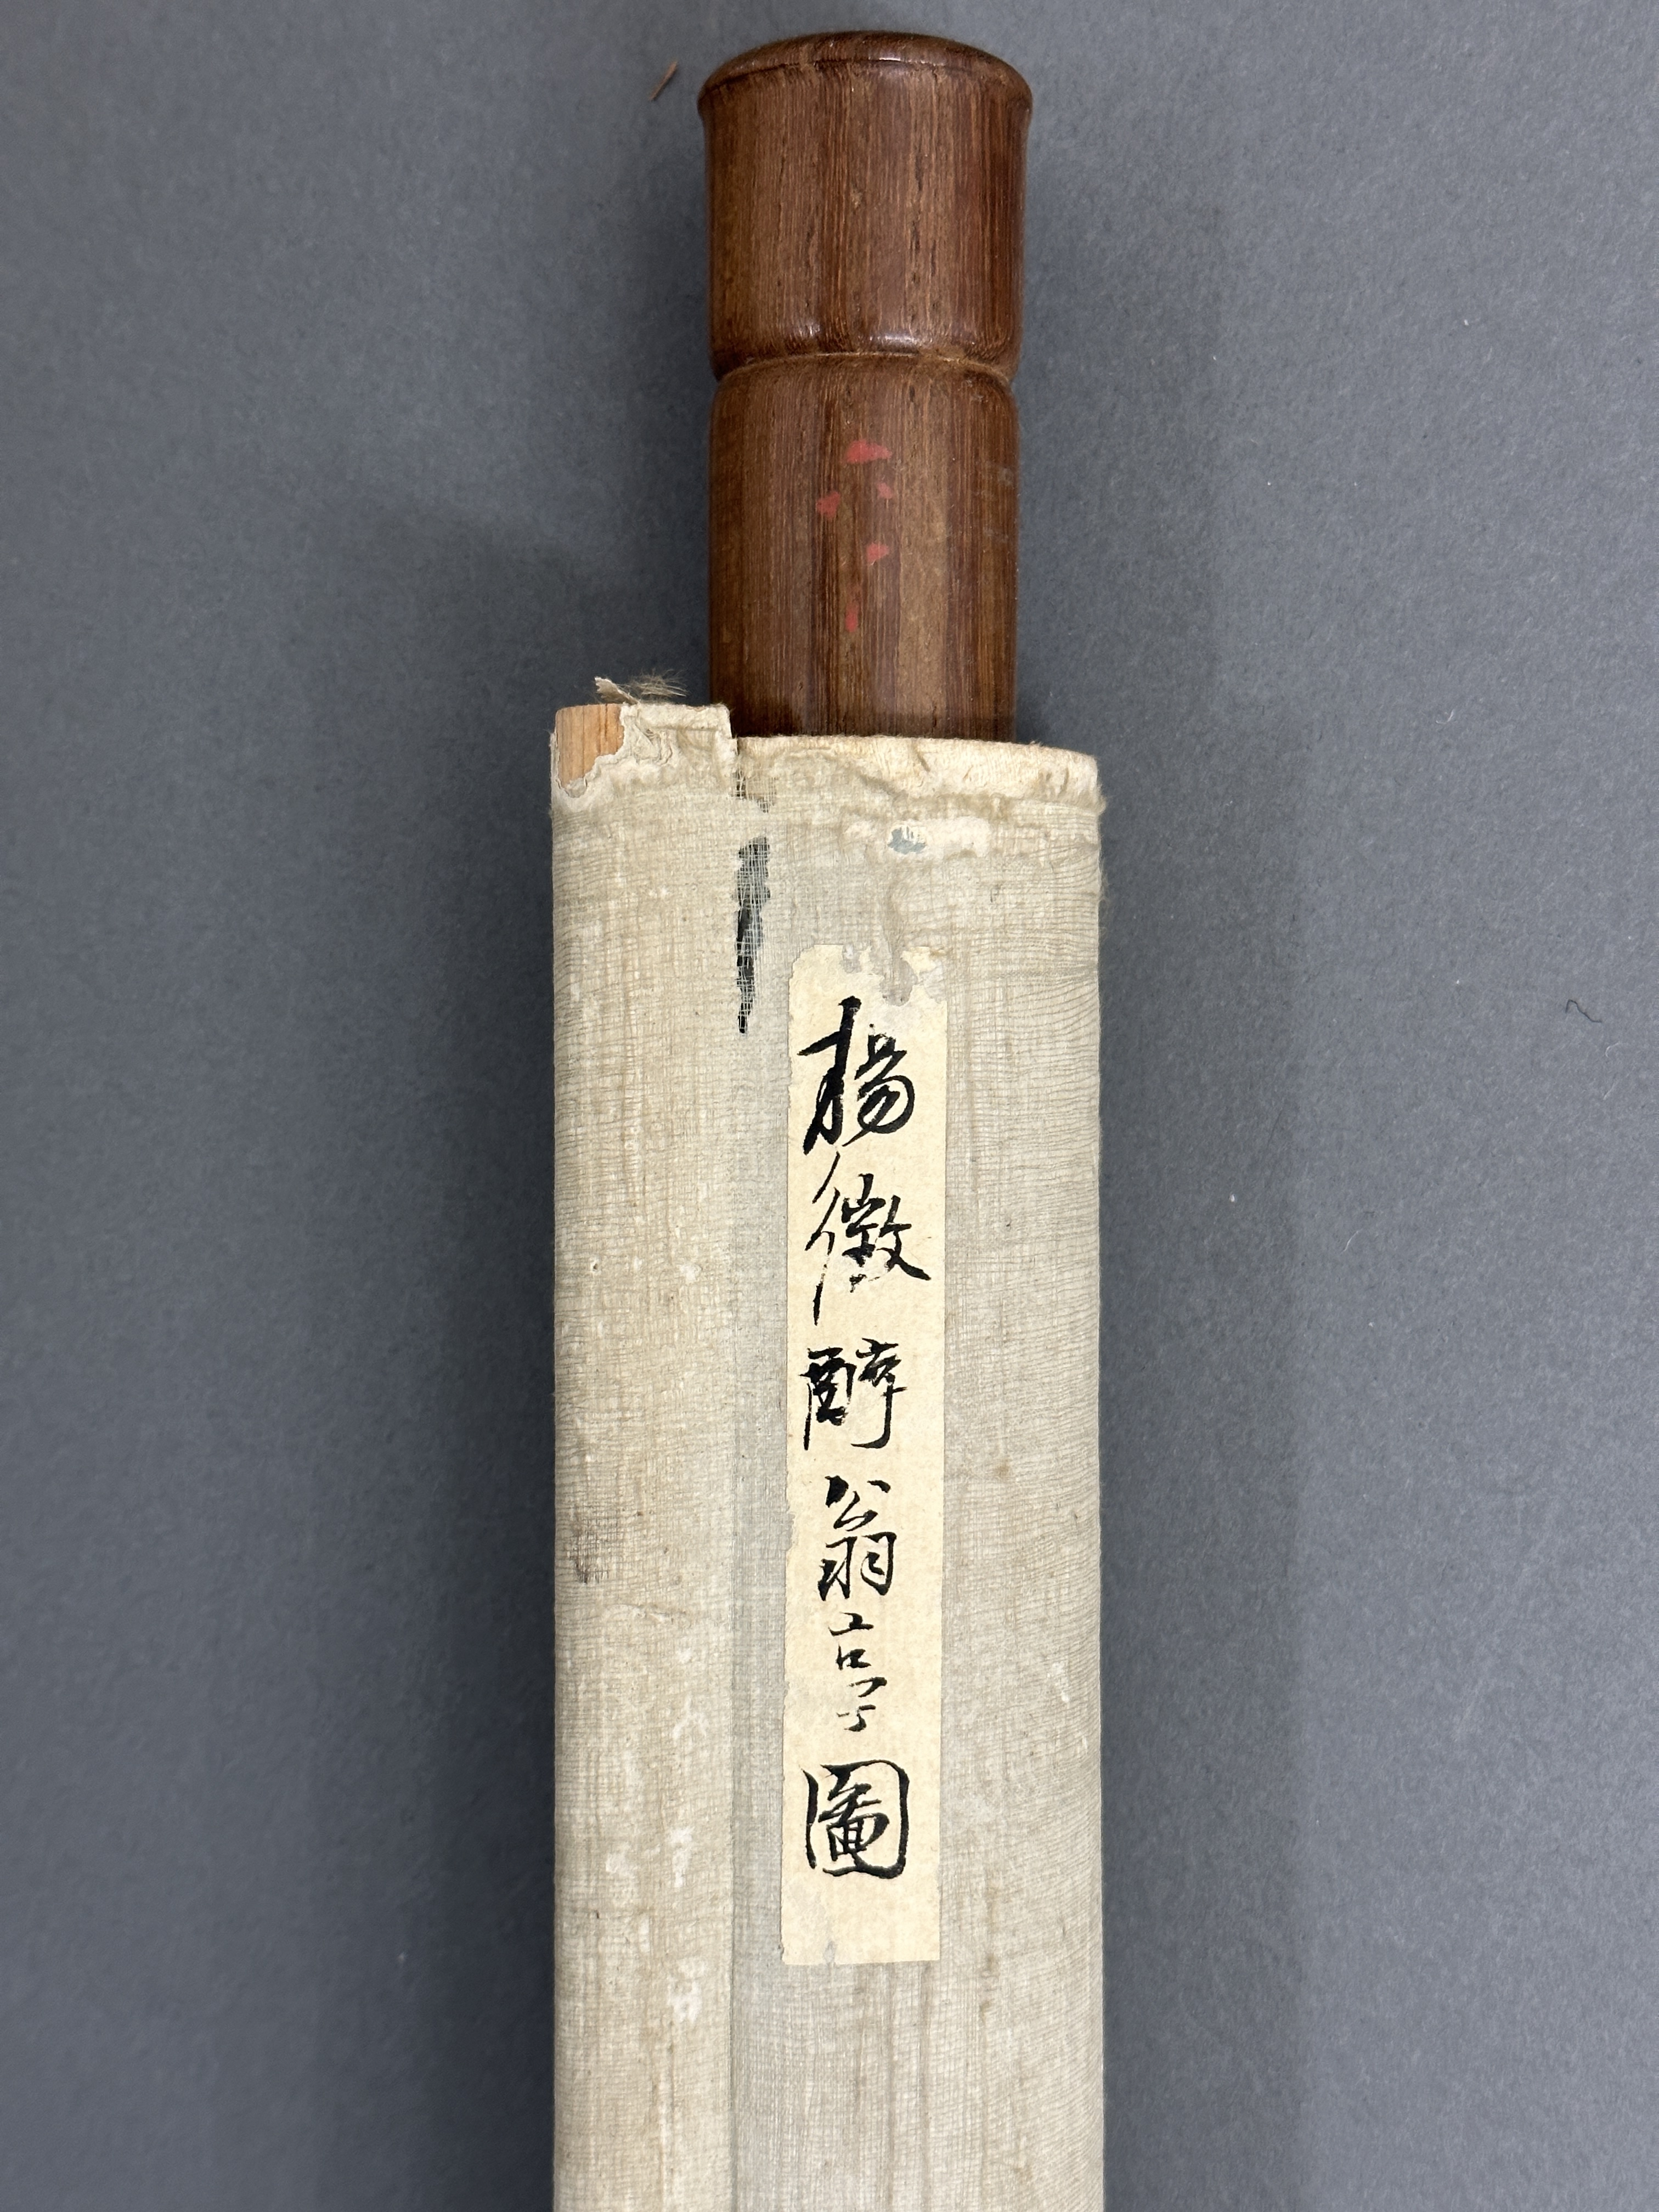 楊徵醉翁亭圖